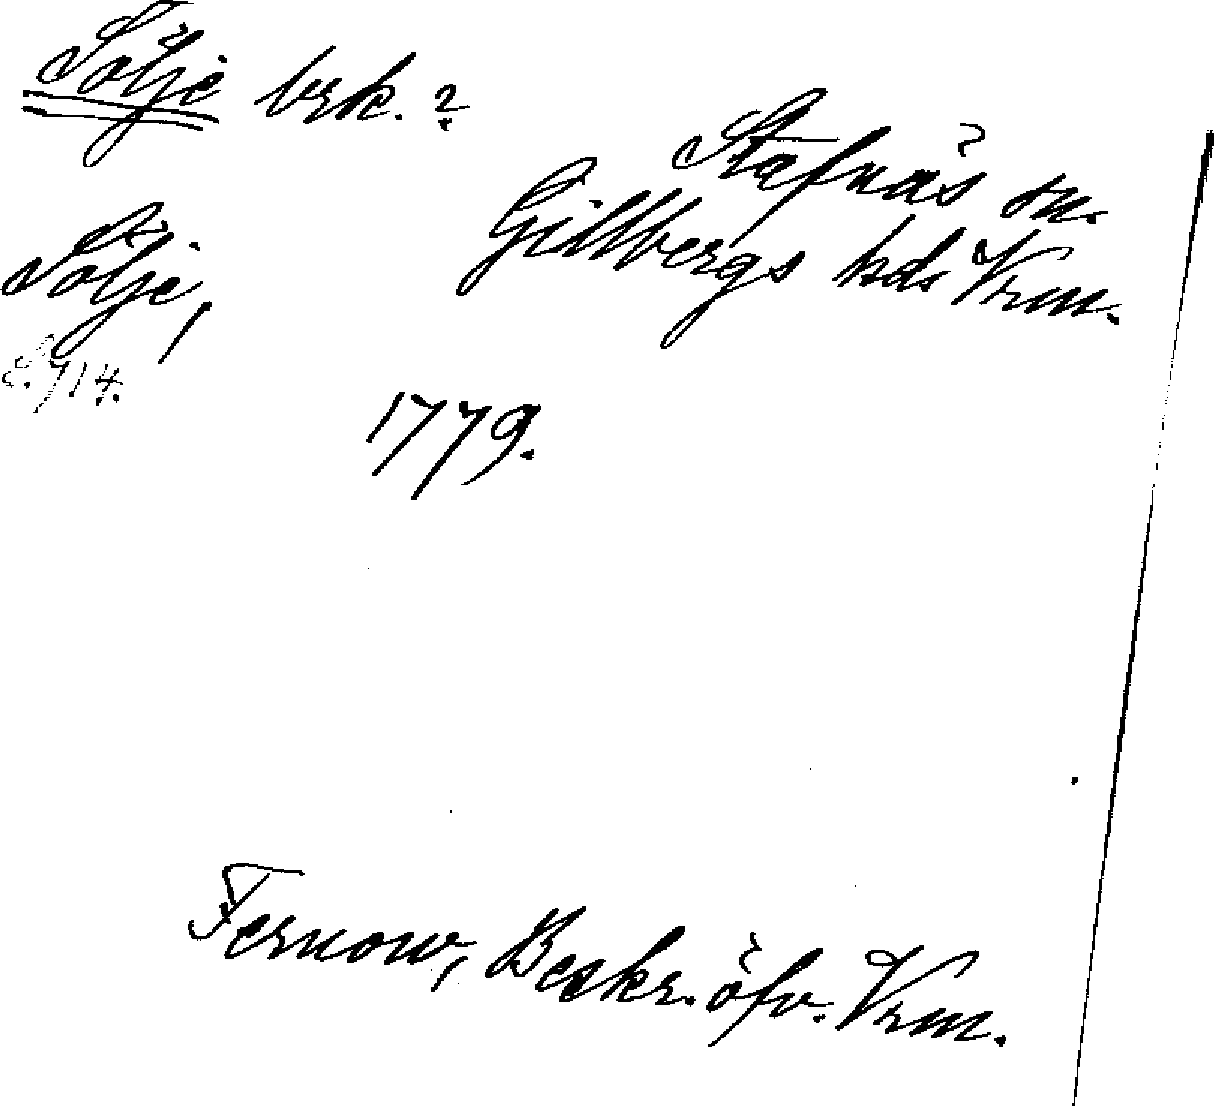 Sölje brk.?
Stafnäs sn.
Gillbergs hd. Vrm.
Sölje,
S. 714.
1779.
Fernow, Beskr. öfv. Vrm.